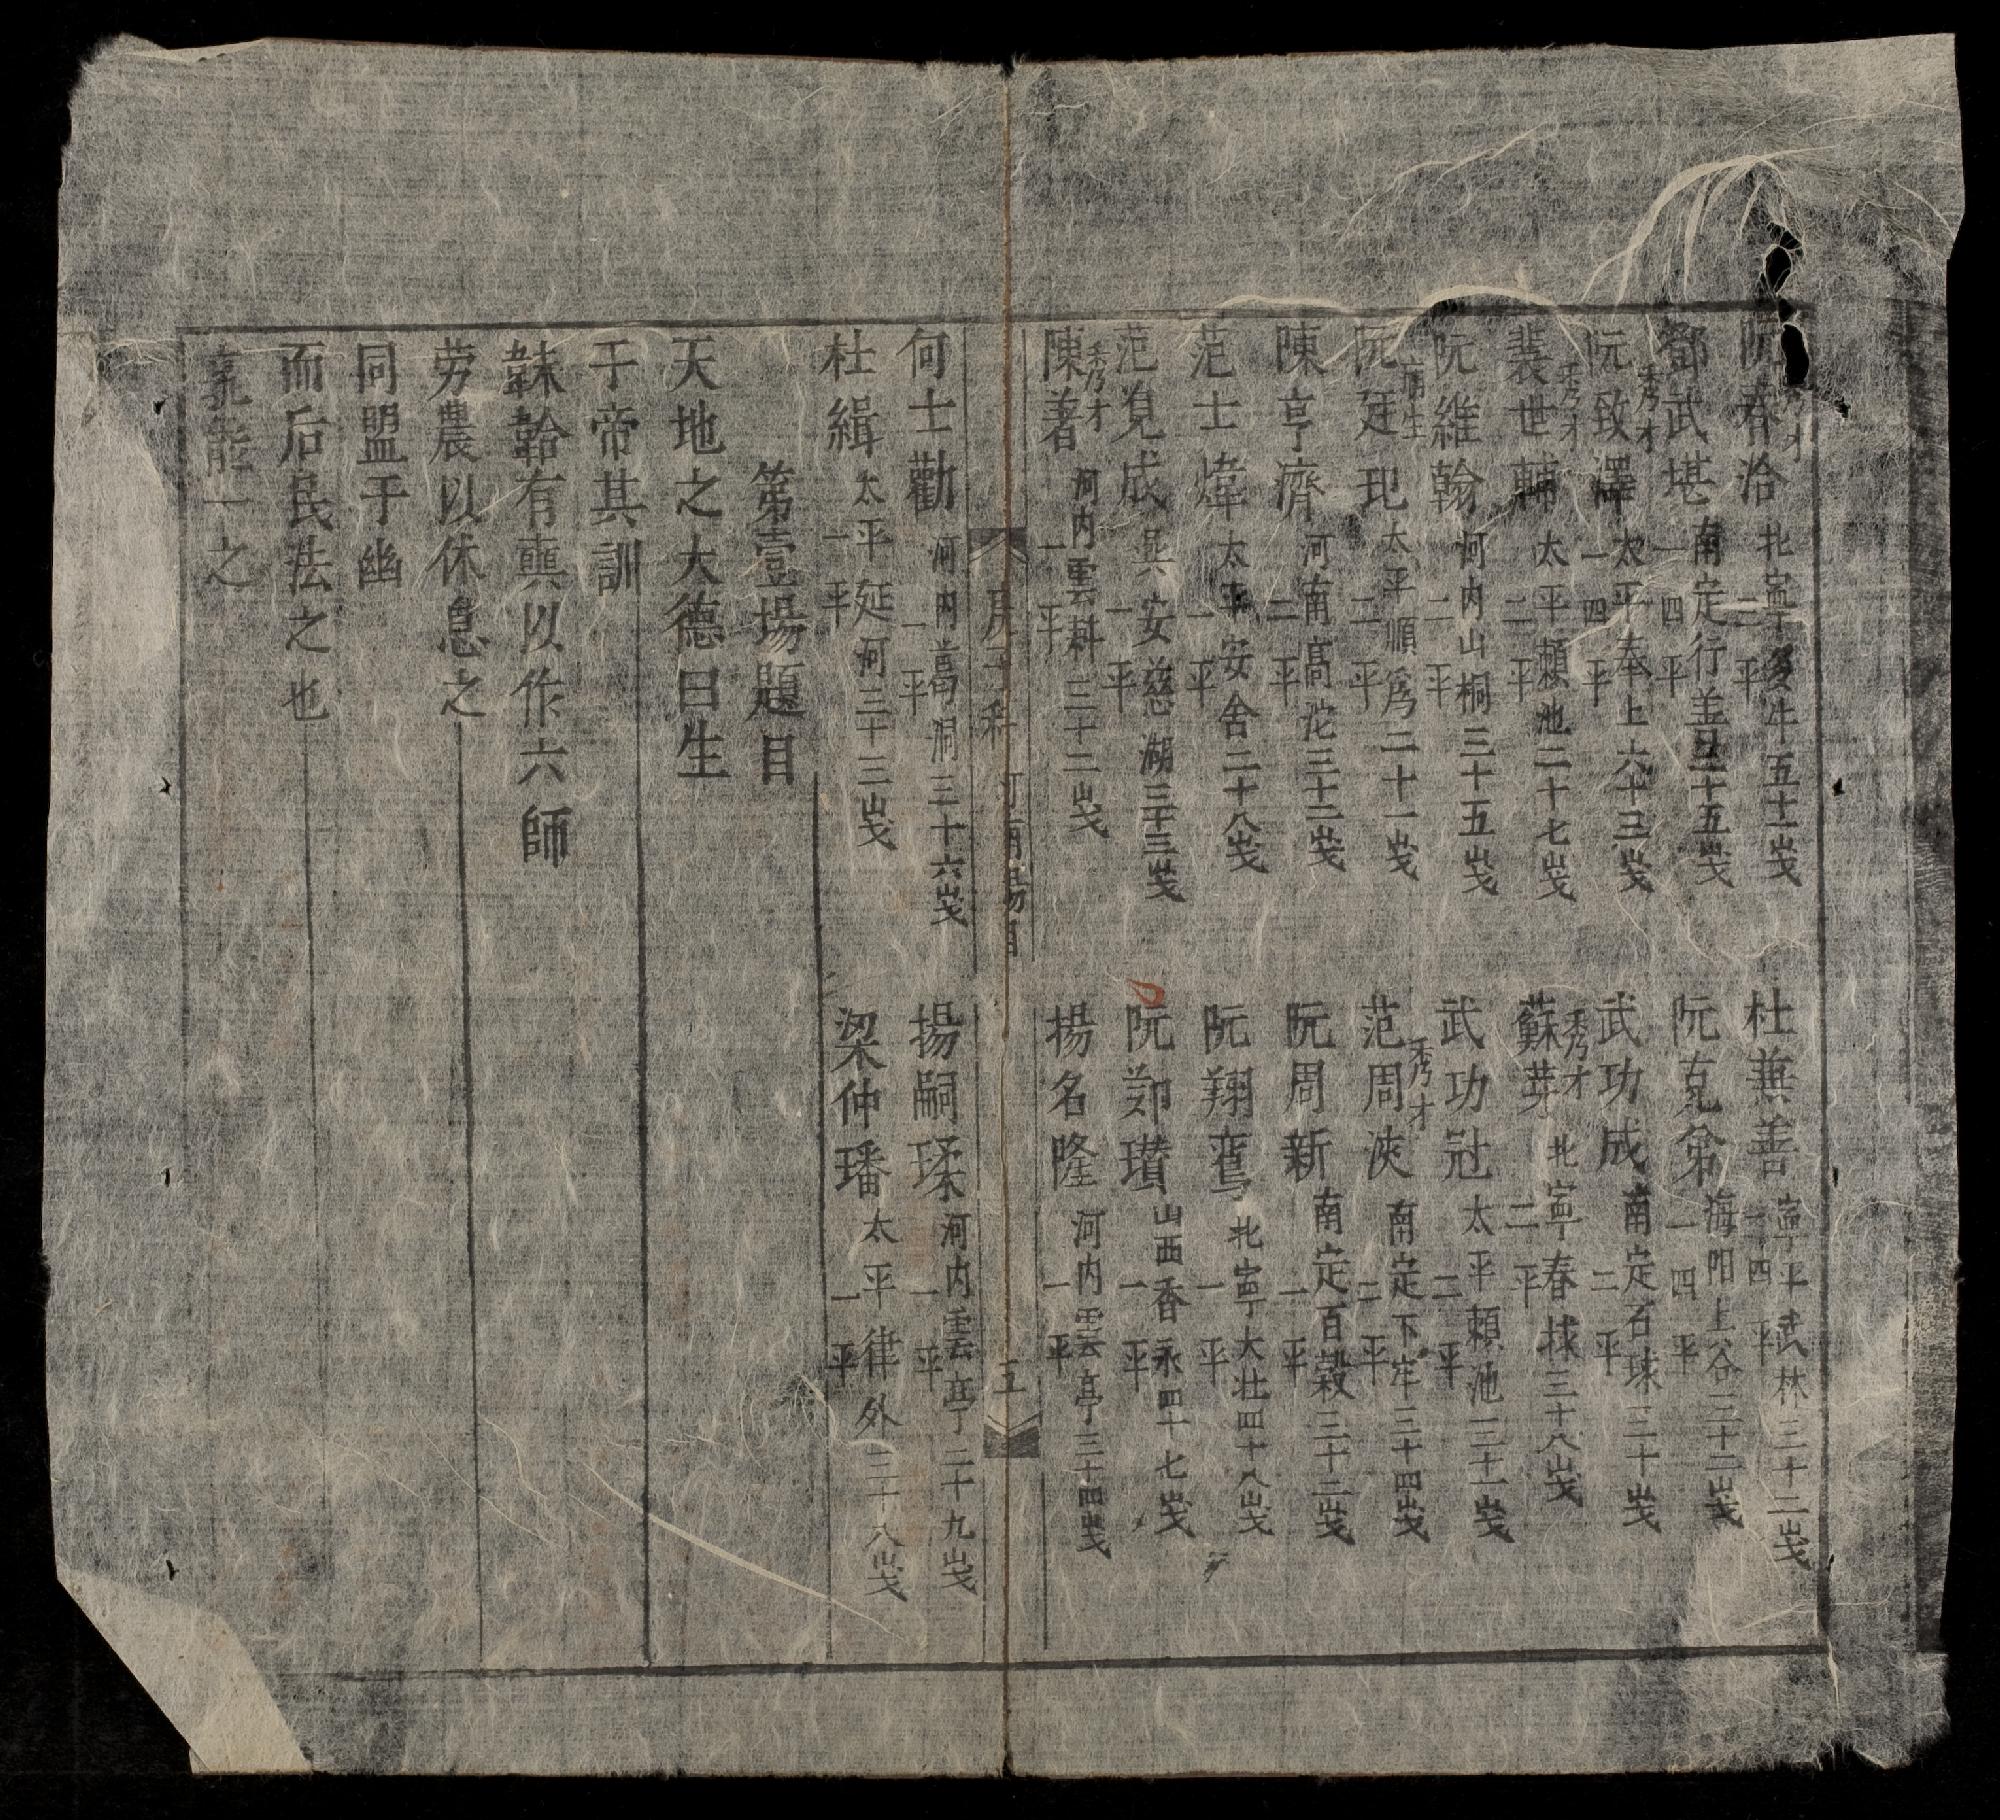 阮春洽 秀才 北寧 二平 五十一歲
杜兼善 寧平武林三十二歲 一四平
鄧武堪 南定行善三十五歲 一四平
阮克 海陽上谷三十二歲 一四平
阮致澤 秀才 太平奉上六十三歲 一四平
武功成 南定石球三十歲 二平
裴世輔 秀才 太平賴池二十七歲 二平
蘇 秀才 北寧春 三十八歲 二平
阮維翰 河內山桐三十五歲 二平
武功冠 太平賴池三十一歲 二平
阮廷玘 太平順爲二十一歲 二平
范周浹 秀才 南定下牢三十四歲 二平
陳亨濟 河南高沱三十二歲 二平
阮周新 南定百穀三十二歲 一平
范士煒 太平安舍二十八歲 一平
阮翔鸞 北寧大壯四十八歲 一平
范覓成 興安慈湖三十三歲 一平
阮鄚瓚 山西香永四十七歲 一平
陳著 秀才 河內雲科三十二歲 一平
揚名隆 河內雲亭三十四歲 一平
子科 河南場 五
何士勸 河內葛洞三十六歲 一平
揚嗣瑈 河內雲亭二十九歲 一平
杜緝 太平延河三十三歲 一平
梁仲璠 太平律外二十八歲 一平
第壹場題目
天地之大德曰生
于帝其訓
韎韐有奭以作六師
劳農以休息之
同盟于幽
而后民法之也
孰能一之